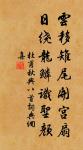 雲移雉尾開宮扇
日繞龍鱗識聖顏
杜甫秋興八首詞典網